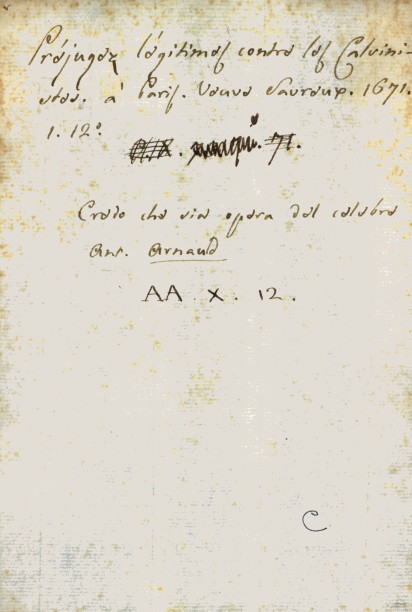 Préjugez légitimes contre les Calvini-
stes. à Paris. Veuve Savreux. 1671.
1. 12º.
71.
Credo che sia opera del celebre
Ant. Arnaud
AA. X. 12.
C